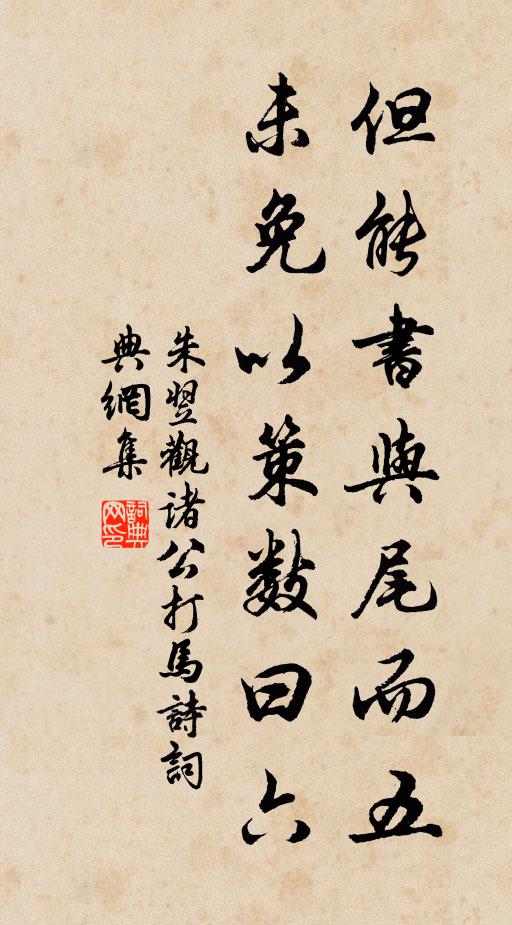 但能書與尾而五
未免以策数曰六
朱翌觀諸公打馬詩詞
典網集
詞典
网印